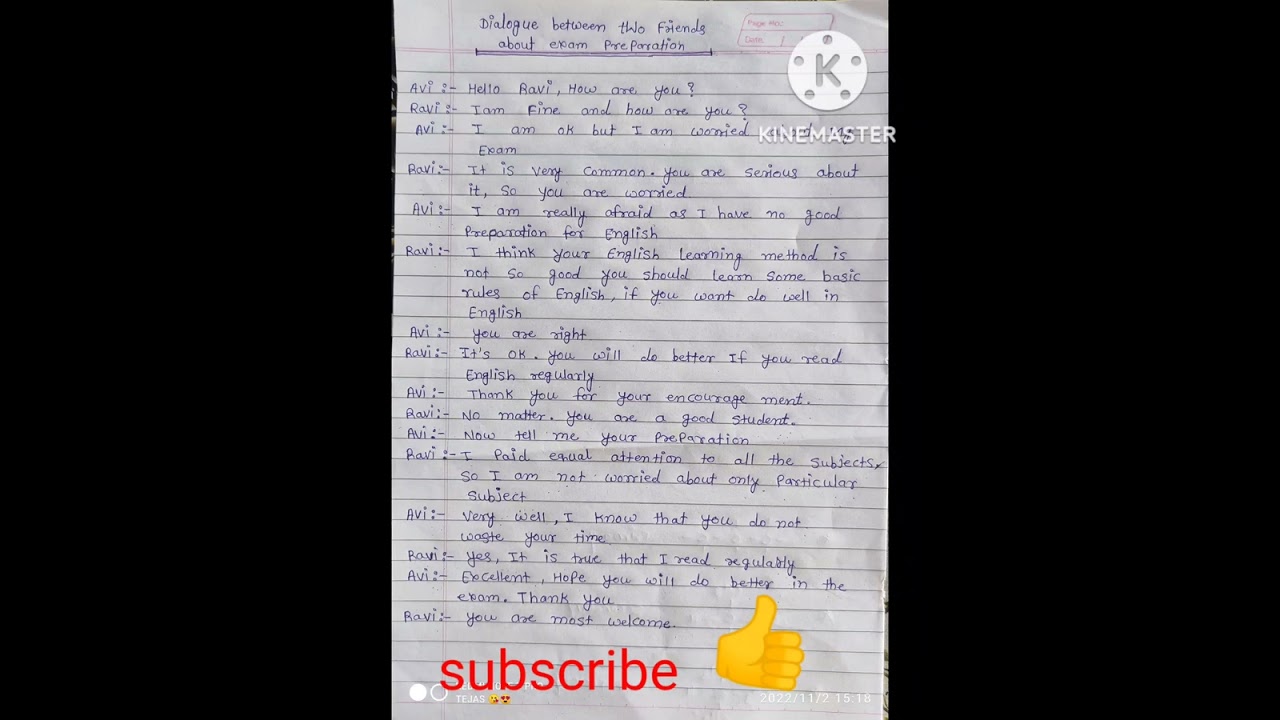 Dialogue between two Friends
about exam preparation
Page No.:
Date: / /
K
KINEMASTER
Avi :- Hello Ravi, How are you?
Ravi:- I am Fine and how are you?
Avi :- I am ok but I am worried
Exam
Ravi:- It is very common. you are serious about
it, so you are worried.
Avi :- I am really afraid as I have no good
Preparation for English
Ravi:- I think your English learning method is
not so good you should learn some basic
rules of English, if you want do well in
English
Avi:- you are right
Ravi:- It's ok. you will do better If you read
English regularly.
Avi :- Thank you for your encourage ment.
Ravi:- No matter. you are a good student.
Avi:- Now tell me your PrePaRation
Ravi:- I Paid equal attention to all the subjects,
so I am not worried about only Particular
subject
Avi:- Very well, I know that you do not
waste your time
Ravi:- yes, It is true that I read regularly
Avi:- Excellent, Hope you will do better in the
exam. Thank you
Ravi:- you are most welcome.
subscribe
TEJAS 😘😍
2022/11/2 15:18